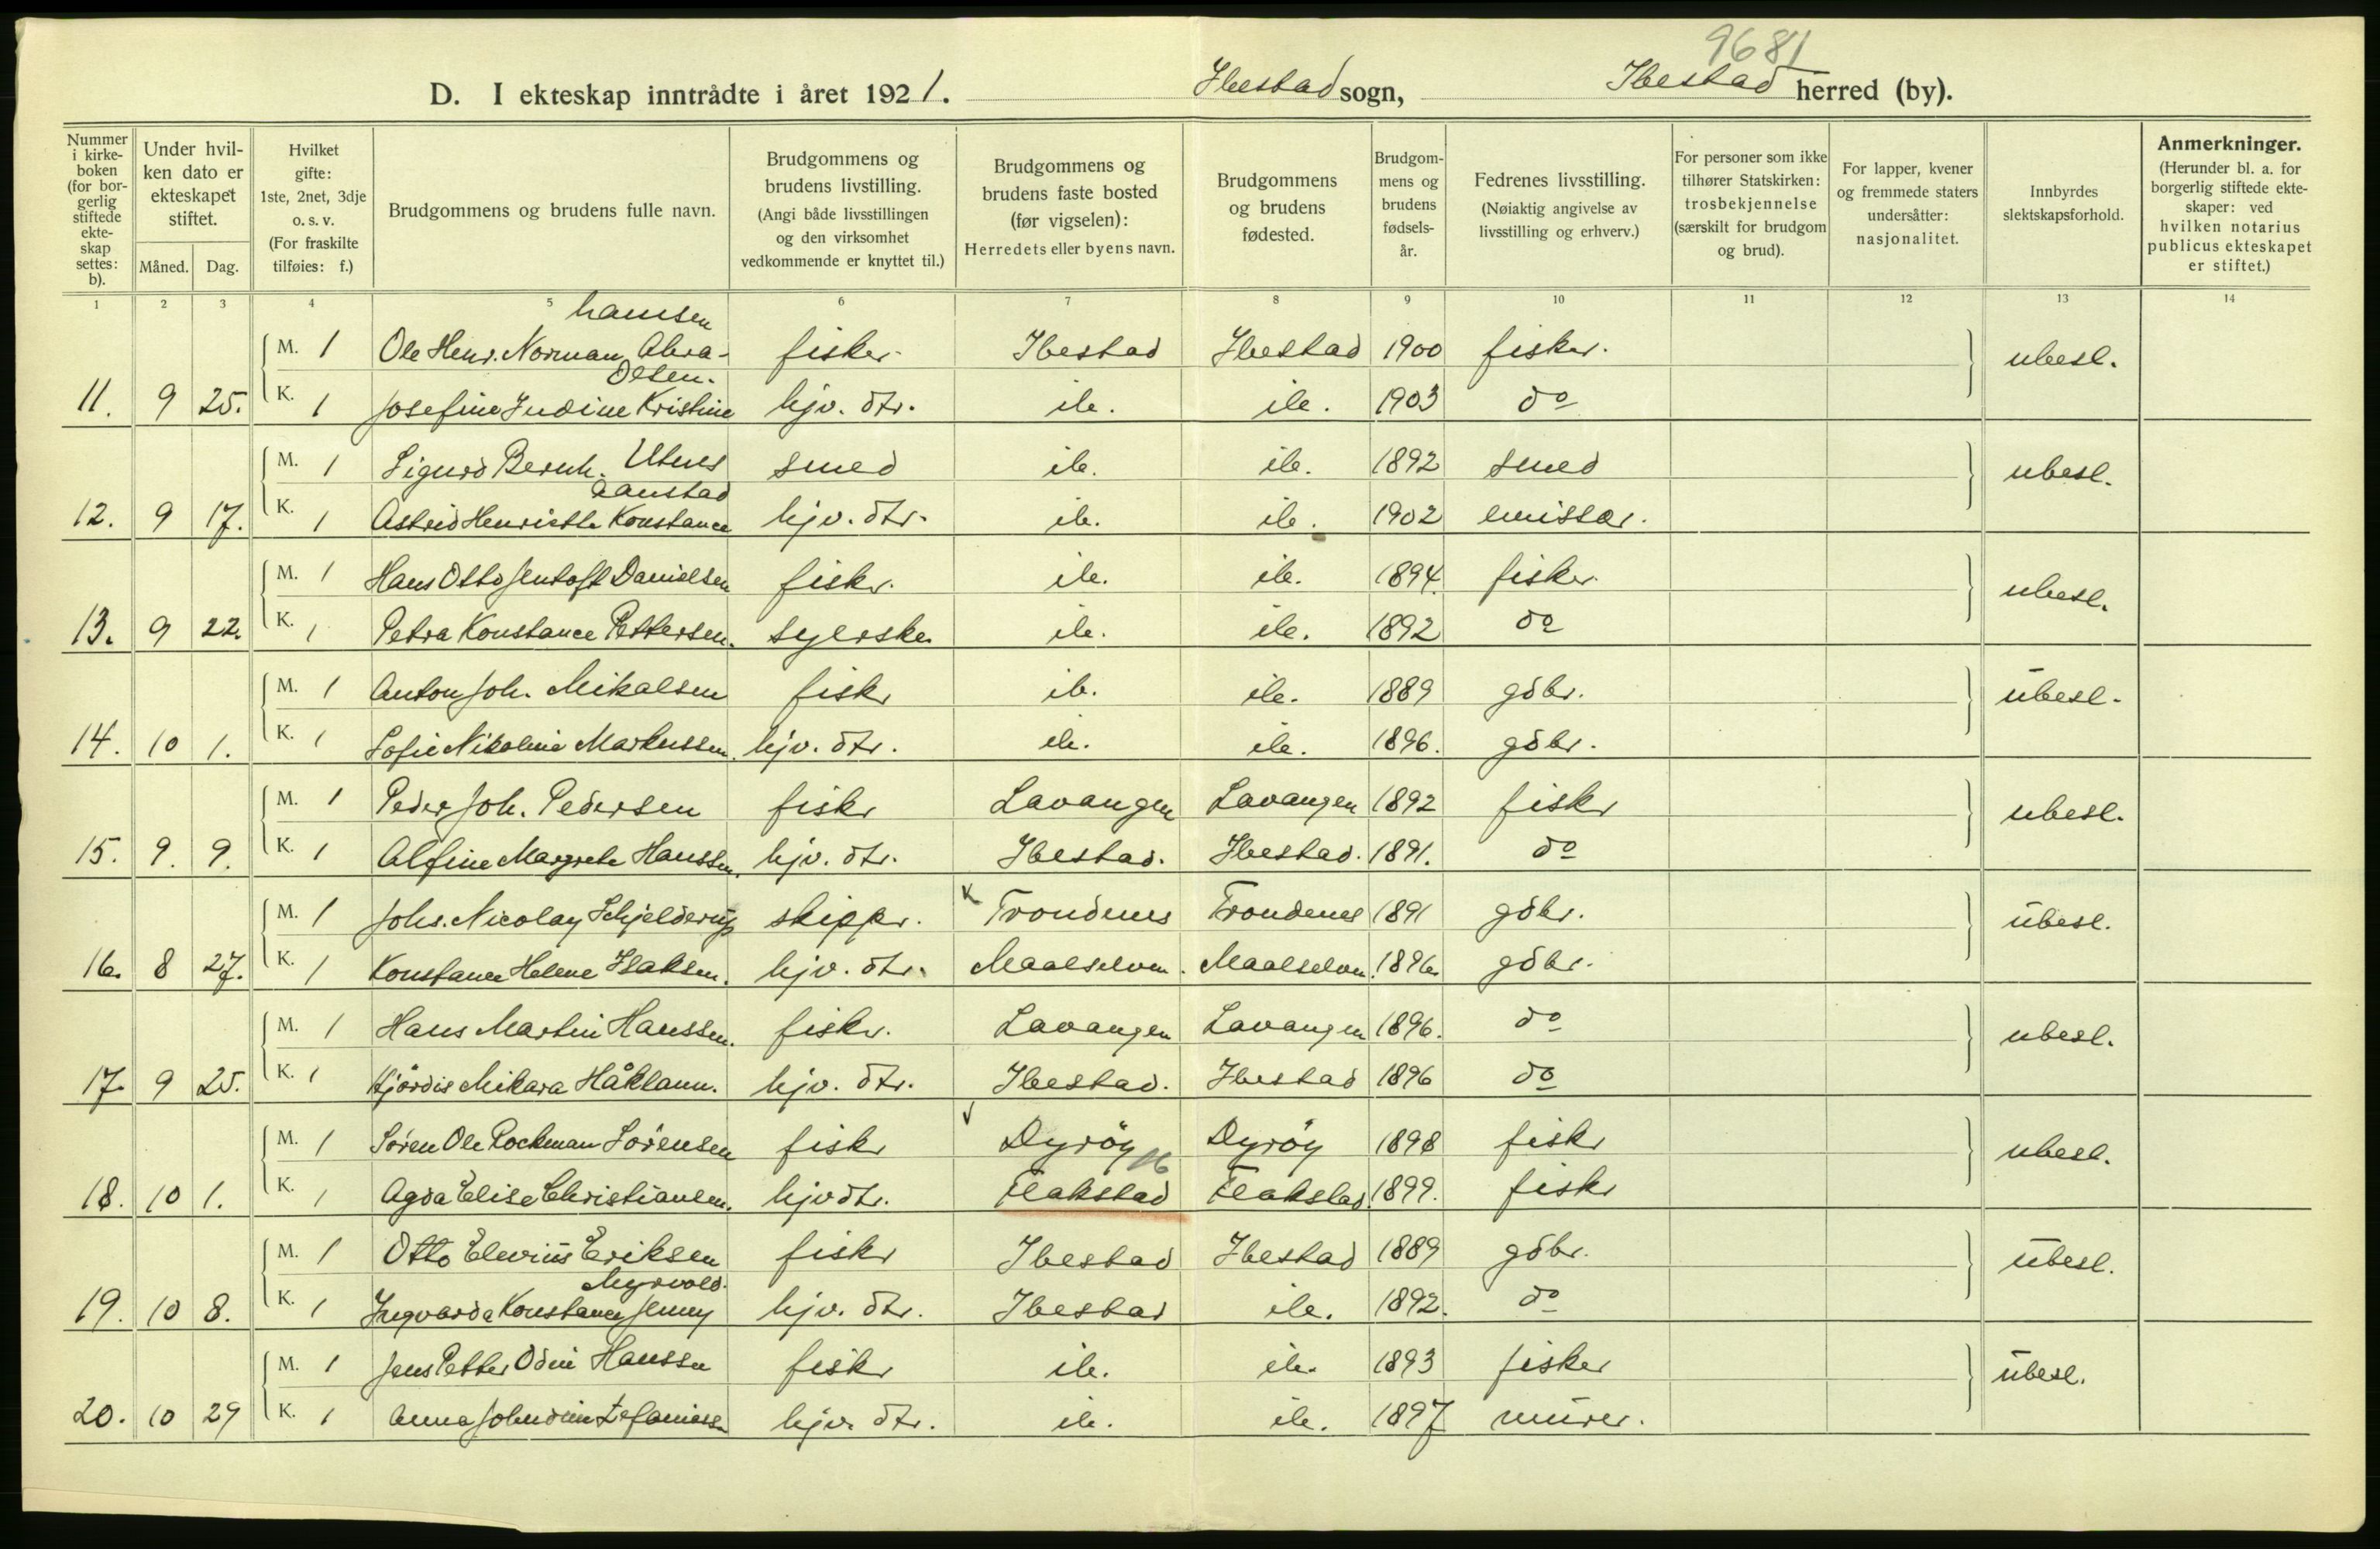 9681
D. I ekteskap inntrådte i året 1921. Ibestad sogn, Ibestad herred (by).
Nummer i kirke-boken (for bor-gerlig stiftede ekte-skap settes: b).
Under hvil-ken dato er ekteskapet stiftet.
Måned. Dag.
Hvilket gifte: 1ste, 2net, 3dje o. s. v. (For fraskilte tilføies: f.)
Brudgommens og brudens fulle navn.
Brudgommens og brudens livstilling. (Angi både livsstillingen og den virksomhet vedkommende er knyttet til.)
Brudgommens og brudens faste bosted (før vigselen): Herredets eller byens navn.
Brudgommens og brudens fødested.
Brudgom-mens og brudens fødsels-år.
Fedrenes livsstilling. (Nøiaktig angivelse av livsstilling og erhverv.)
For personer som ikke tilhører Statskirken: trosbekjennelse (særskilt for brudgom og brud).
For lapper, kvener og fremmede staters undersåtter: nasjonalitet.
Innbyrdes slektskapsforhold.
Anmerkninger. (Herunder bl. a. for borgerlig stiftede ekte-skaper: ved hvilken notarius publicus ekteskapet er stiftet.)
1 2 3 4 5 6 7 8 9 10 11 12 13 14
hamsen
M. 1 Ole Henr. Norman Abra- fisker Ibestad Ibestad 1900 fisker. ubesl.
Olsen.
11. 9 25. K. 1 Josefine Judine Kristine hjv. dtr. ib. ib. 1903 do
M. 1 Sigurd Bernh. Utnes smed ib. ib. 1892 smed ubesl.
Aanstad
12. 9 17. K. 1 Astrid Henriette Konstance hjv. dtr. ib. ib. 1902 emissær.
M. 1 Hans Otto Jentoft Danielsen fisker. ib. ib. 1894. fisker. ubesl.
13. 9 22. K. 1 Petra Konstance Pettersen. syerske ib. ib. 1892 do
M. 1 Anton Joh. Mikalsen fisker ib. ib. 1889 gdbr. ubesl.
14. 10 1. K. 1 Sofie Nikoline Markussen. hjv. dtr. ib. ib. 1896. gdbr.
M. 1 Peder Joh. Pedersen fisker Lavangen Lavangen 1892 fisker ubesl.
15. 9. 9. K. 1 Alfine Margrete Hanssen. hjv. dtr. Ibestad. Ibestad. 1891. do
M. 1 Johs. Nicolay Schjelderup skipper. x Trondenes Trondenes 1891 gdbr. ubesl.
16. 8 27. K. 1 Konstance Helene Isaksen. hjv. dtr. Maalselven. Maalselven. 1896. gdbr.
M. 1 Hans Martin Hanssen. fisker. Lavangen Lavangen 1896. do ubesl.
17. 9 25. K. 1 Hjördis Mikara Håklann. hjv. dtr. Ibestad. Ibestad 1896 do
M. 1 Sören Ole Rockman Sörensen fisker Dyröy Dyröy 1898 fisker ubesl.
18. 10 1. K. 1 Agda Elise Christiansen. hjv dtr. Flakstad Flakstad. 1899. fisker
M. 1 Otto Elevius Eriksen fisker Ibestad Ibestad 1889 gdbr. ubesl.
Myrvold.
19. 10 8. K. 1 Ingvarda Konstance Jenny hjv. dtr. Ibestad ib. 1892. do
M. 1 Jens Petter Odin Hanssen fisker ib. ib. 1893 fisker ubesl.
20. 10 29 K. 1 Anna hjv. dtr. ib. ib. 1897 murer.